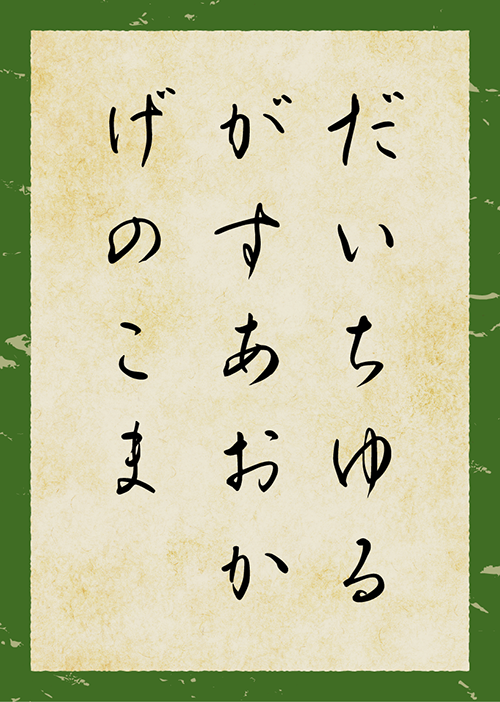 だいちゆる
がすあおか
げのこま